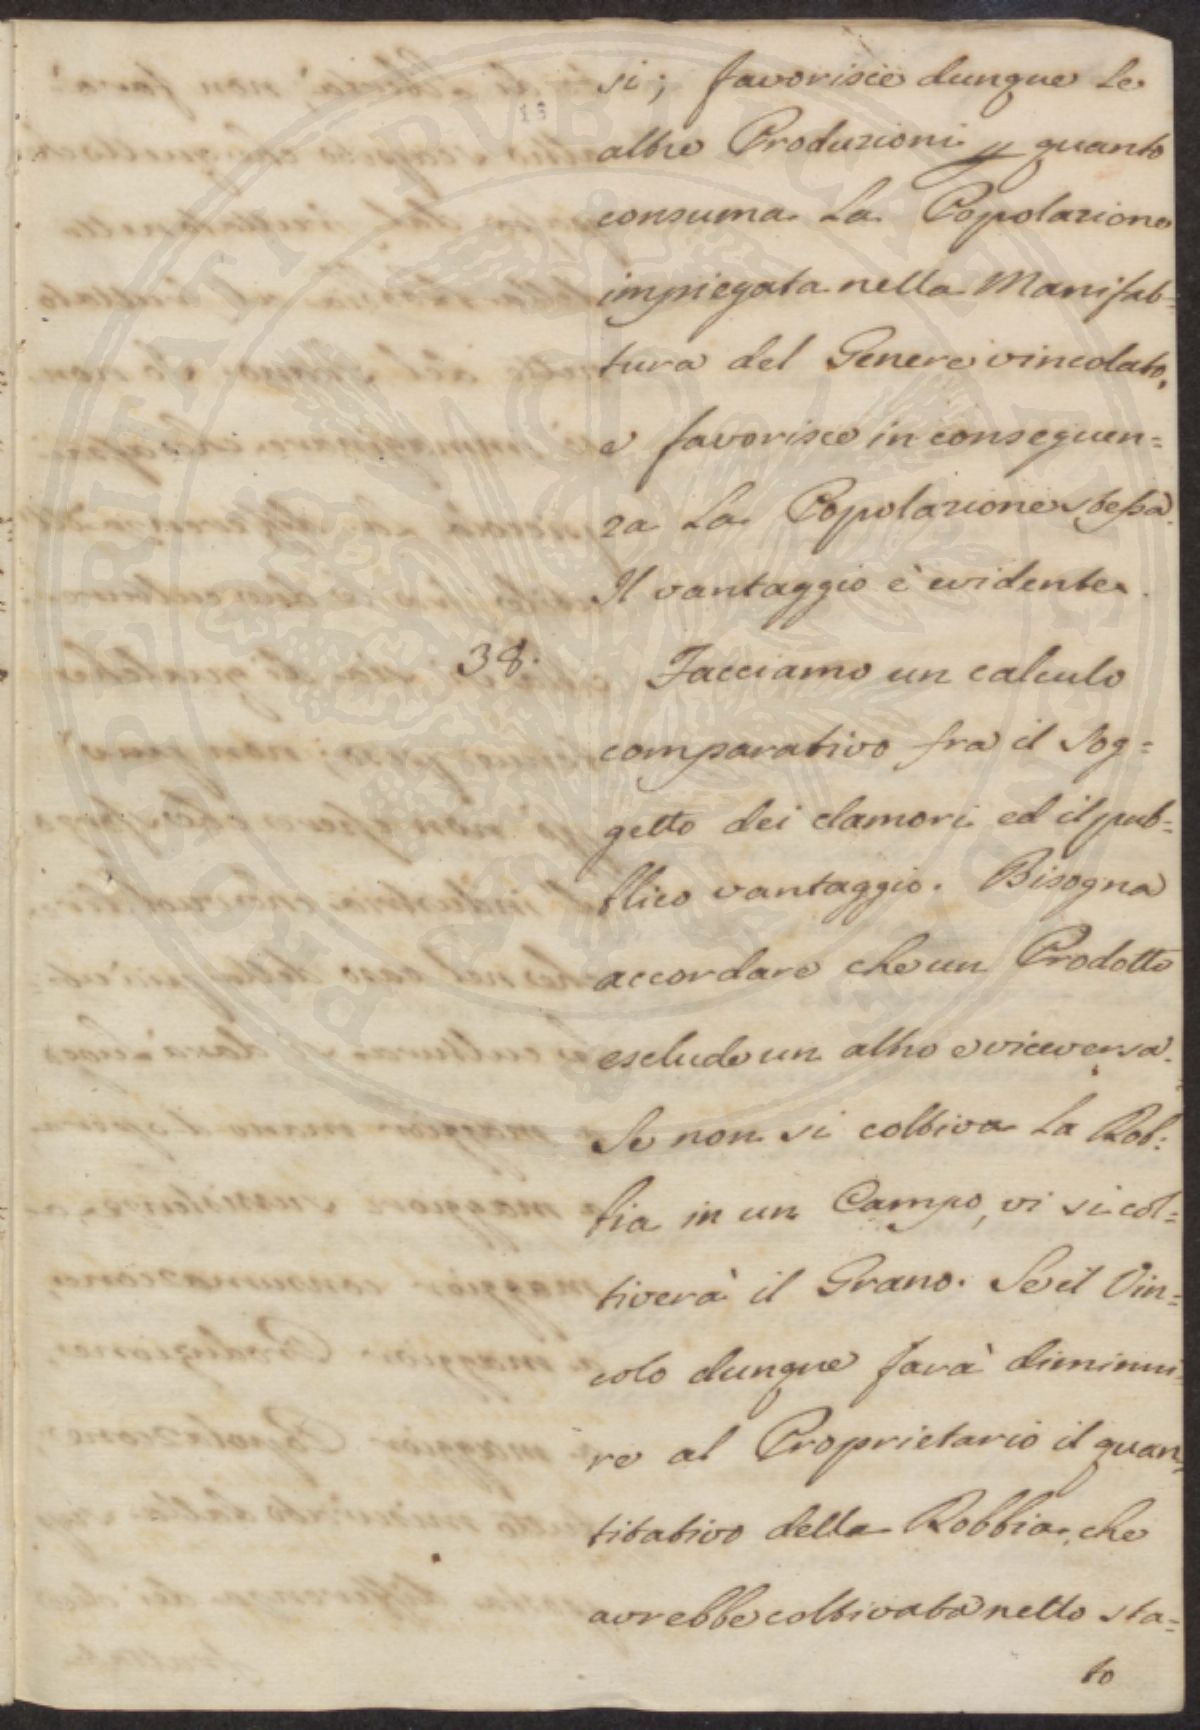 si; favorisce dunque Le
altre Produzioni p quanto
consuma La Popolazione
impiegata nella Manifat=
tura del Genere vincolato,
e favorisce in conseguen=
za La Popolazione stessa.
Il vantaggio è evidente.
38. Facciamo un calculo
comparativo fra il sog=
getto dei clamori ed il pub=
blico vantaggio. Bisogna
accordare che un Prodotto
esclude un altro e viceversa.
Se non si coltiva La Rob=
bia in un Campo, vi si col=
tiverà il Grano. Se il Vin=
colo dunque farà diminui=
re al Proprietario il quan=
titativo della Robbia, che
avrebbe coltivato nello sta=
to